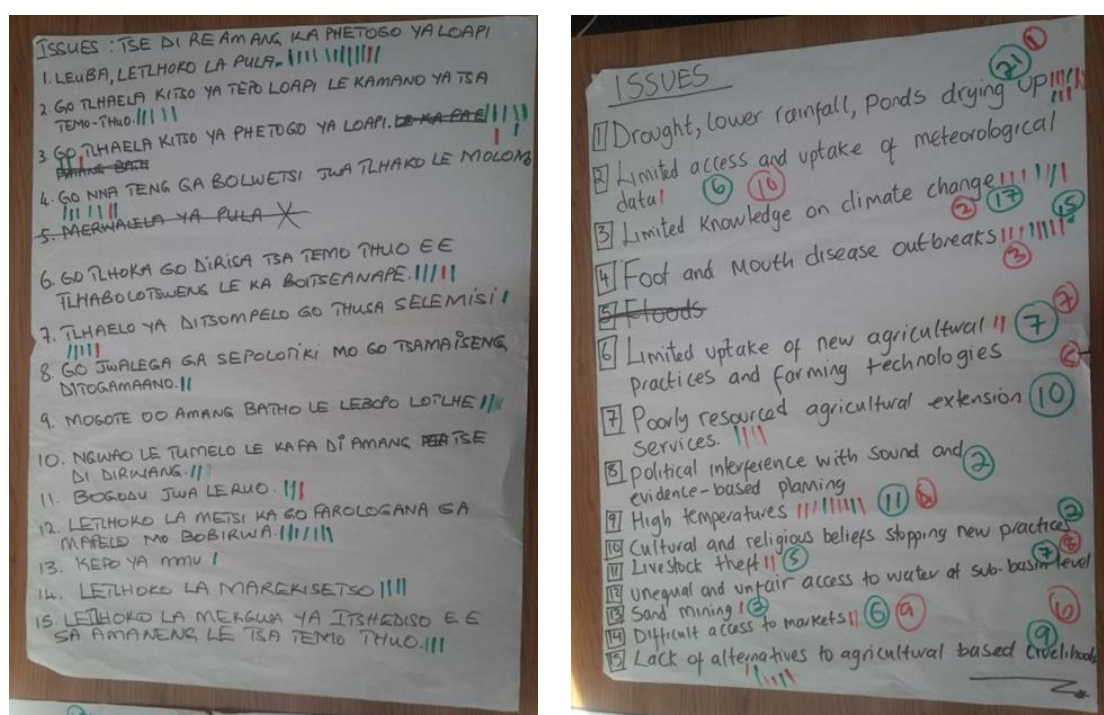 ISSUES : TSE DI RE AMANG KA PHETOGO YA LOAPI
1. LEUBA, LETLHOKO LA PULA-
2. GO TLHAELA KITSO YA TEPO LOAPI LE KAMANO YA TSA
TEMO-THUO.
3 GO TLHAELA KITSO YA PHETOGO YA LOAPI.
4. GO NNA TENG GA BOLWETSI JWA TLHAKO LE MOLOMO
5. MERWALELA YA PULA X
6. GO TLHOKA GO DIRISA TSA TEMO THUO E E
TLHABOLOTSWENG LE KA BOITSEANAPE.
7. TLHAELO YA DITSOMPELO GO THUSA SELEMISI
8. GO JWALEGA GA SEPOLOTIKI MO GO TSAMAISENG
DITOGAMAANO.
9. MOGOTE OO AMANG BATHO LE LEBOPO LOTLHE
10. NGWAO LE TUMELO LE KAFA DI AMANG TSE
DI DIRWANG.
11. BOGODU JWA LERUO.
12. LETLHOKO LA METSI KA GO FAROLOGANA GA
MAFELO MO BOBIRWA.
13. KEPO YA MMU
14. LETLHOKO LA MAREKISETSO
15. LETLHOKO LA MEKGWA YA ITSHEDISO E E
SA AMANENG LE TSA TEMO THUO.
ISSUES
21 1
1 Drought, lower rainfall, Ponds drying up
2 Limited access and uptake of meteorological
data 6 10
3 Limited Knowledge on climate change
2 17 15
4 Foot and Mouth disease outbreaks
3
5 Floods
6 Limited uptake of new agricultural 7 7
practices and farming technologies
7 Poorly resourced agricultural extension 10
services.
8 political interference with sound and 2
evidence-based planning
9 High temperatures 11
10 Cultural and religious beliefs stopping new practices 2
11 Livestock theft 5
12 unequal and unfair access to water at sub-basin level 7 8
13 Sand mining 2
14 Difficult access to markets 6 9
15 Lack of alternatives to agricultural based Livelihoods 9